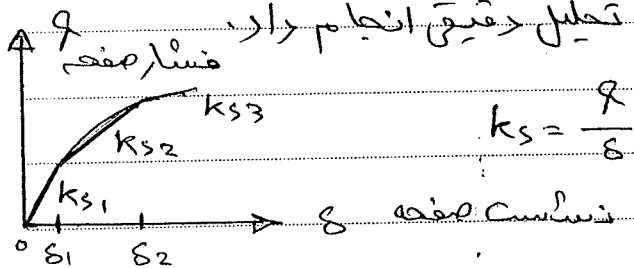 تحلیل دقیقی انجام داد.
q
فشار صفحه
ks3
ks = q/δ
ks2
ks1
δ نشست صفحه
0 δ1 δ2